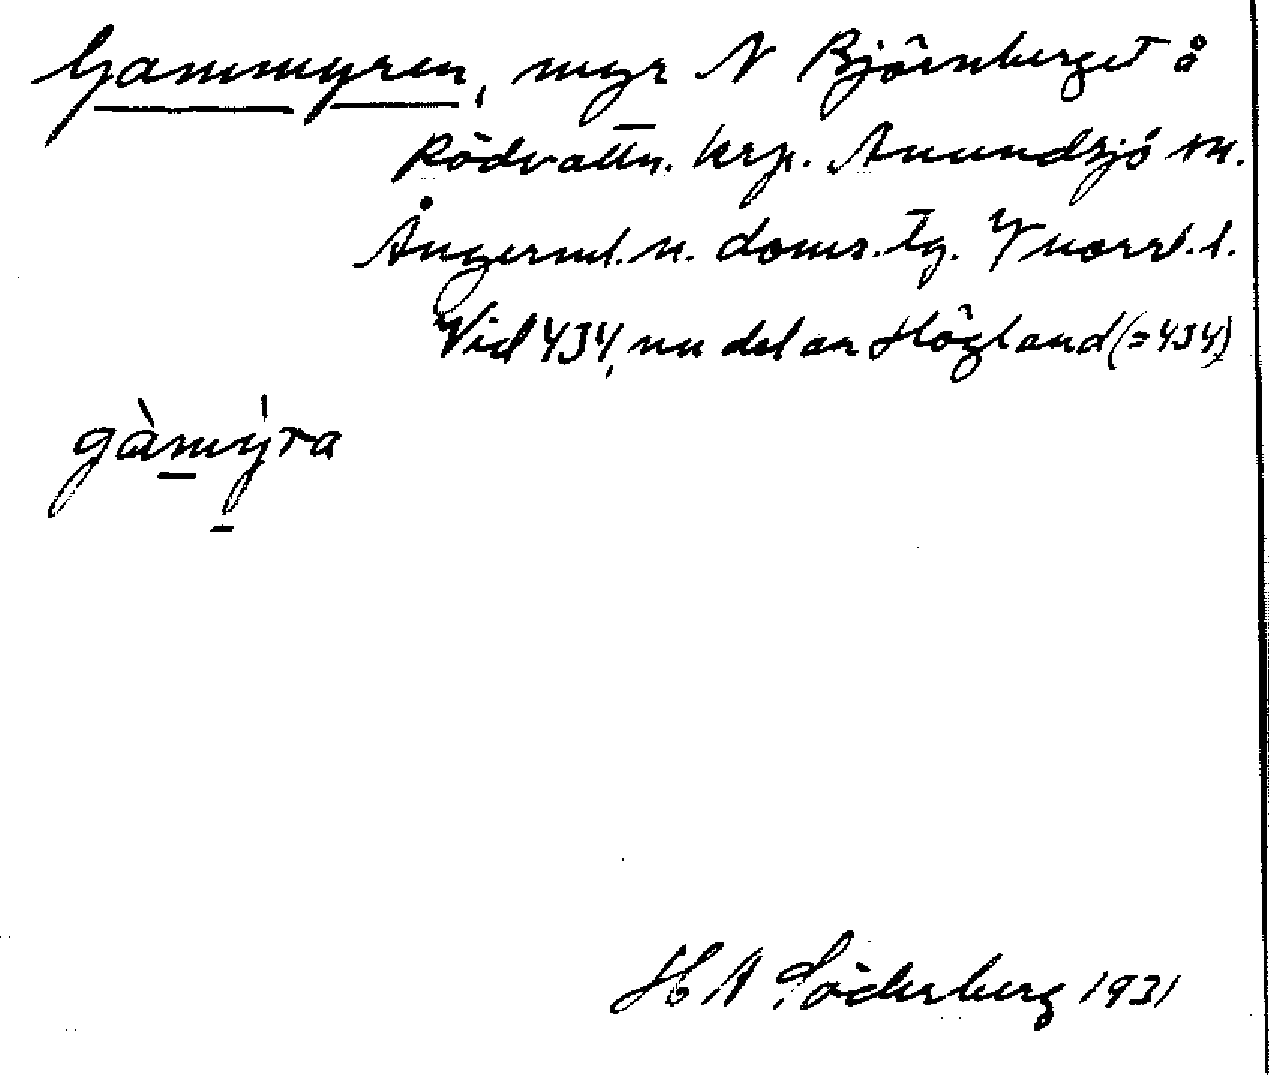 Gammyren, myr N Björnberget å
Rödvattn. krp. Anundsjö sn.
Ångerml. n. doms. tg. Y norrl. l.
Vid 434, nu del av Högland (=434)
gàmýra
H A Söderberg 1931